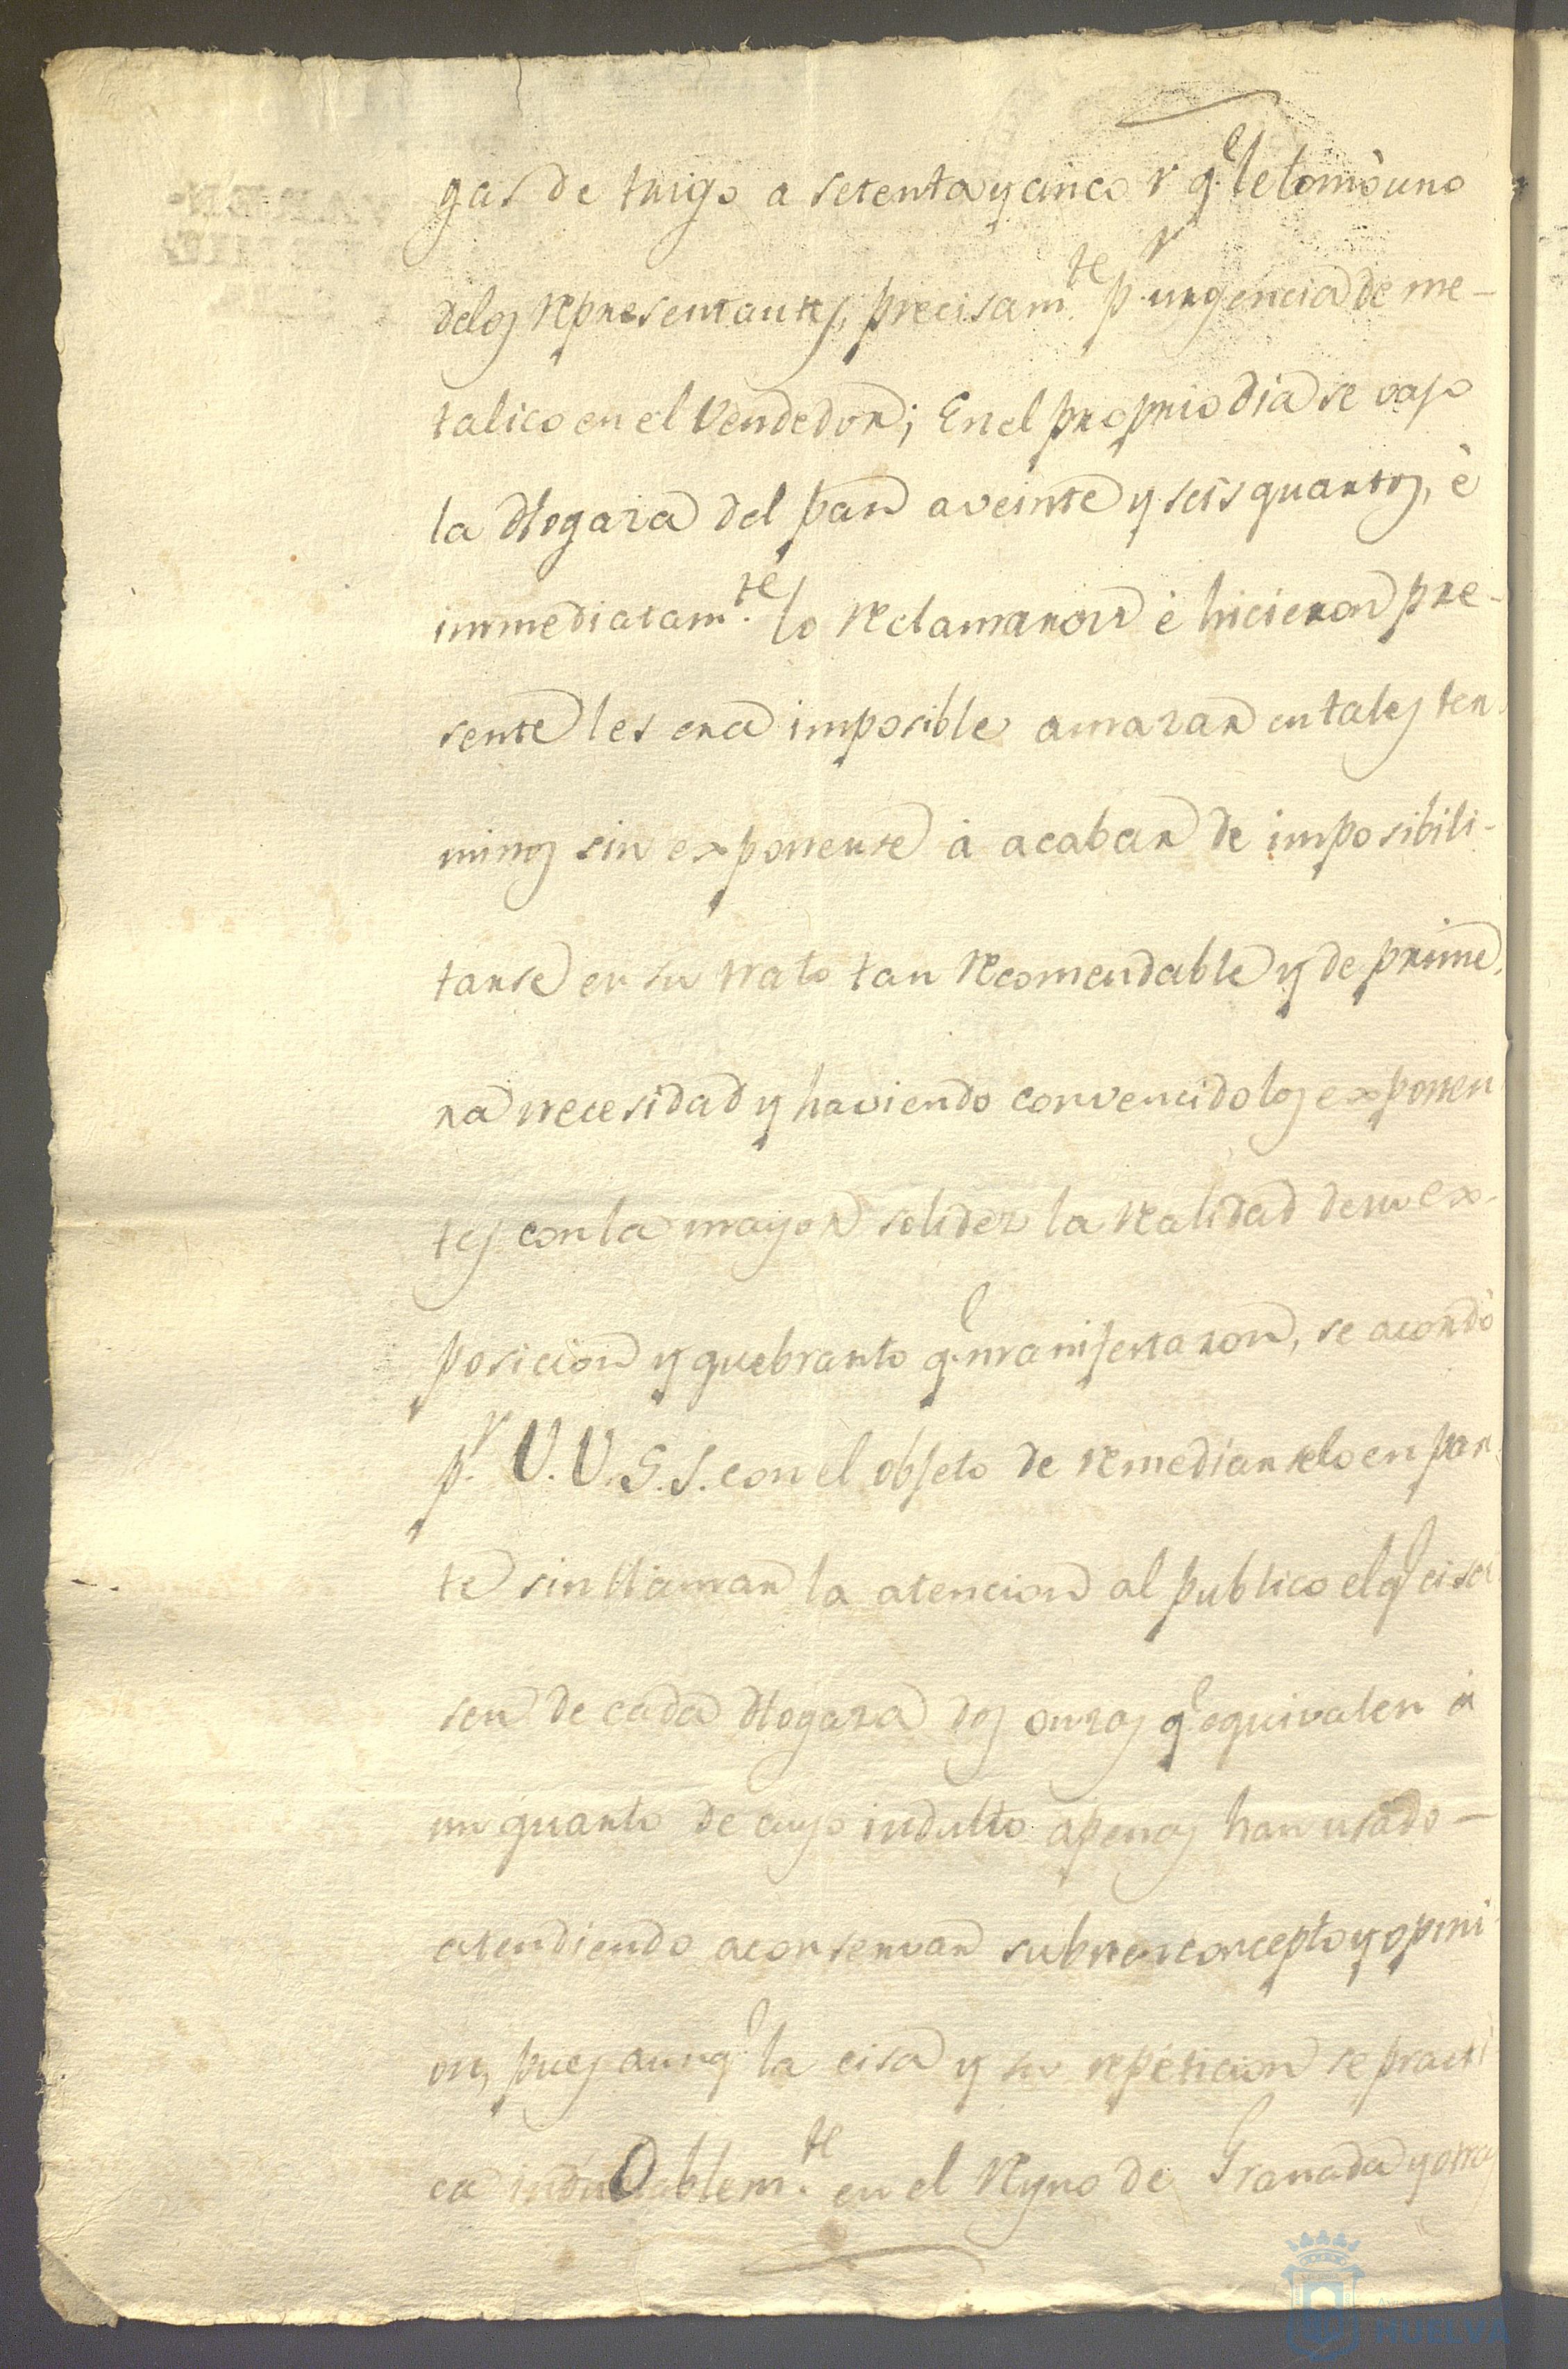 gas de trigo a setenta y cinco r.^s q.^e le tomò uno
de los representantes, precisam.^te p.^r urgencia de me-
talico en el Vendedor; En el proprio dia se vajo
la Hogaza del pan a veinte y seis quartos, è
immediatam.^te lo reclamaron è hicieron pre-
sente les era imposible amazar en tales ter-
minos sin exponerse à acabar de imposibili-
tarse en su trato tan recomendable y de prime-
ra necesidad y haviendo convencido los exponen
tes con la mayor solidez la realidad de su ex-
posicion y quebranto q.^e manifestaron, se acordò
p.^r V.V.S.S. con el objeto de remediarselo en par-
te sin llamar la atencion al publico el q.^e cisa
sen de cada Hogaza dos onzas q.^e equivalen à
un quarto de cuyo indulto apenas han usado-
atendiendo a conservar su buen concepto y opini
on, pues aunq.^e la cisa y su repeticion se practi
ca indudablem.^te en el Reyno de Granada y otros
HUELVA